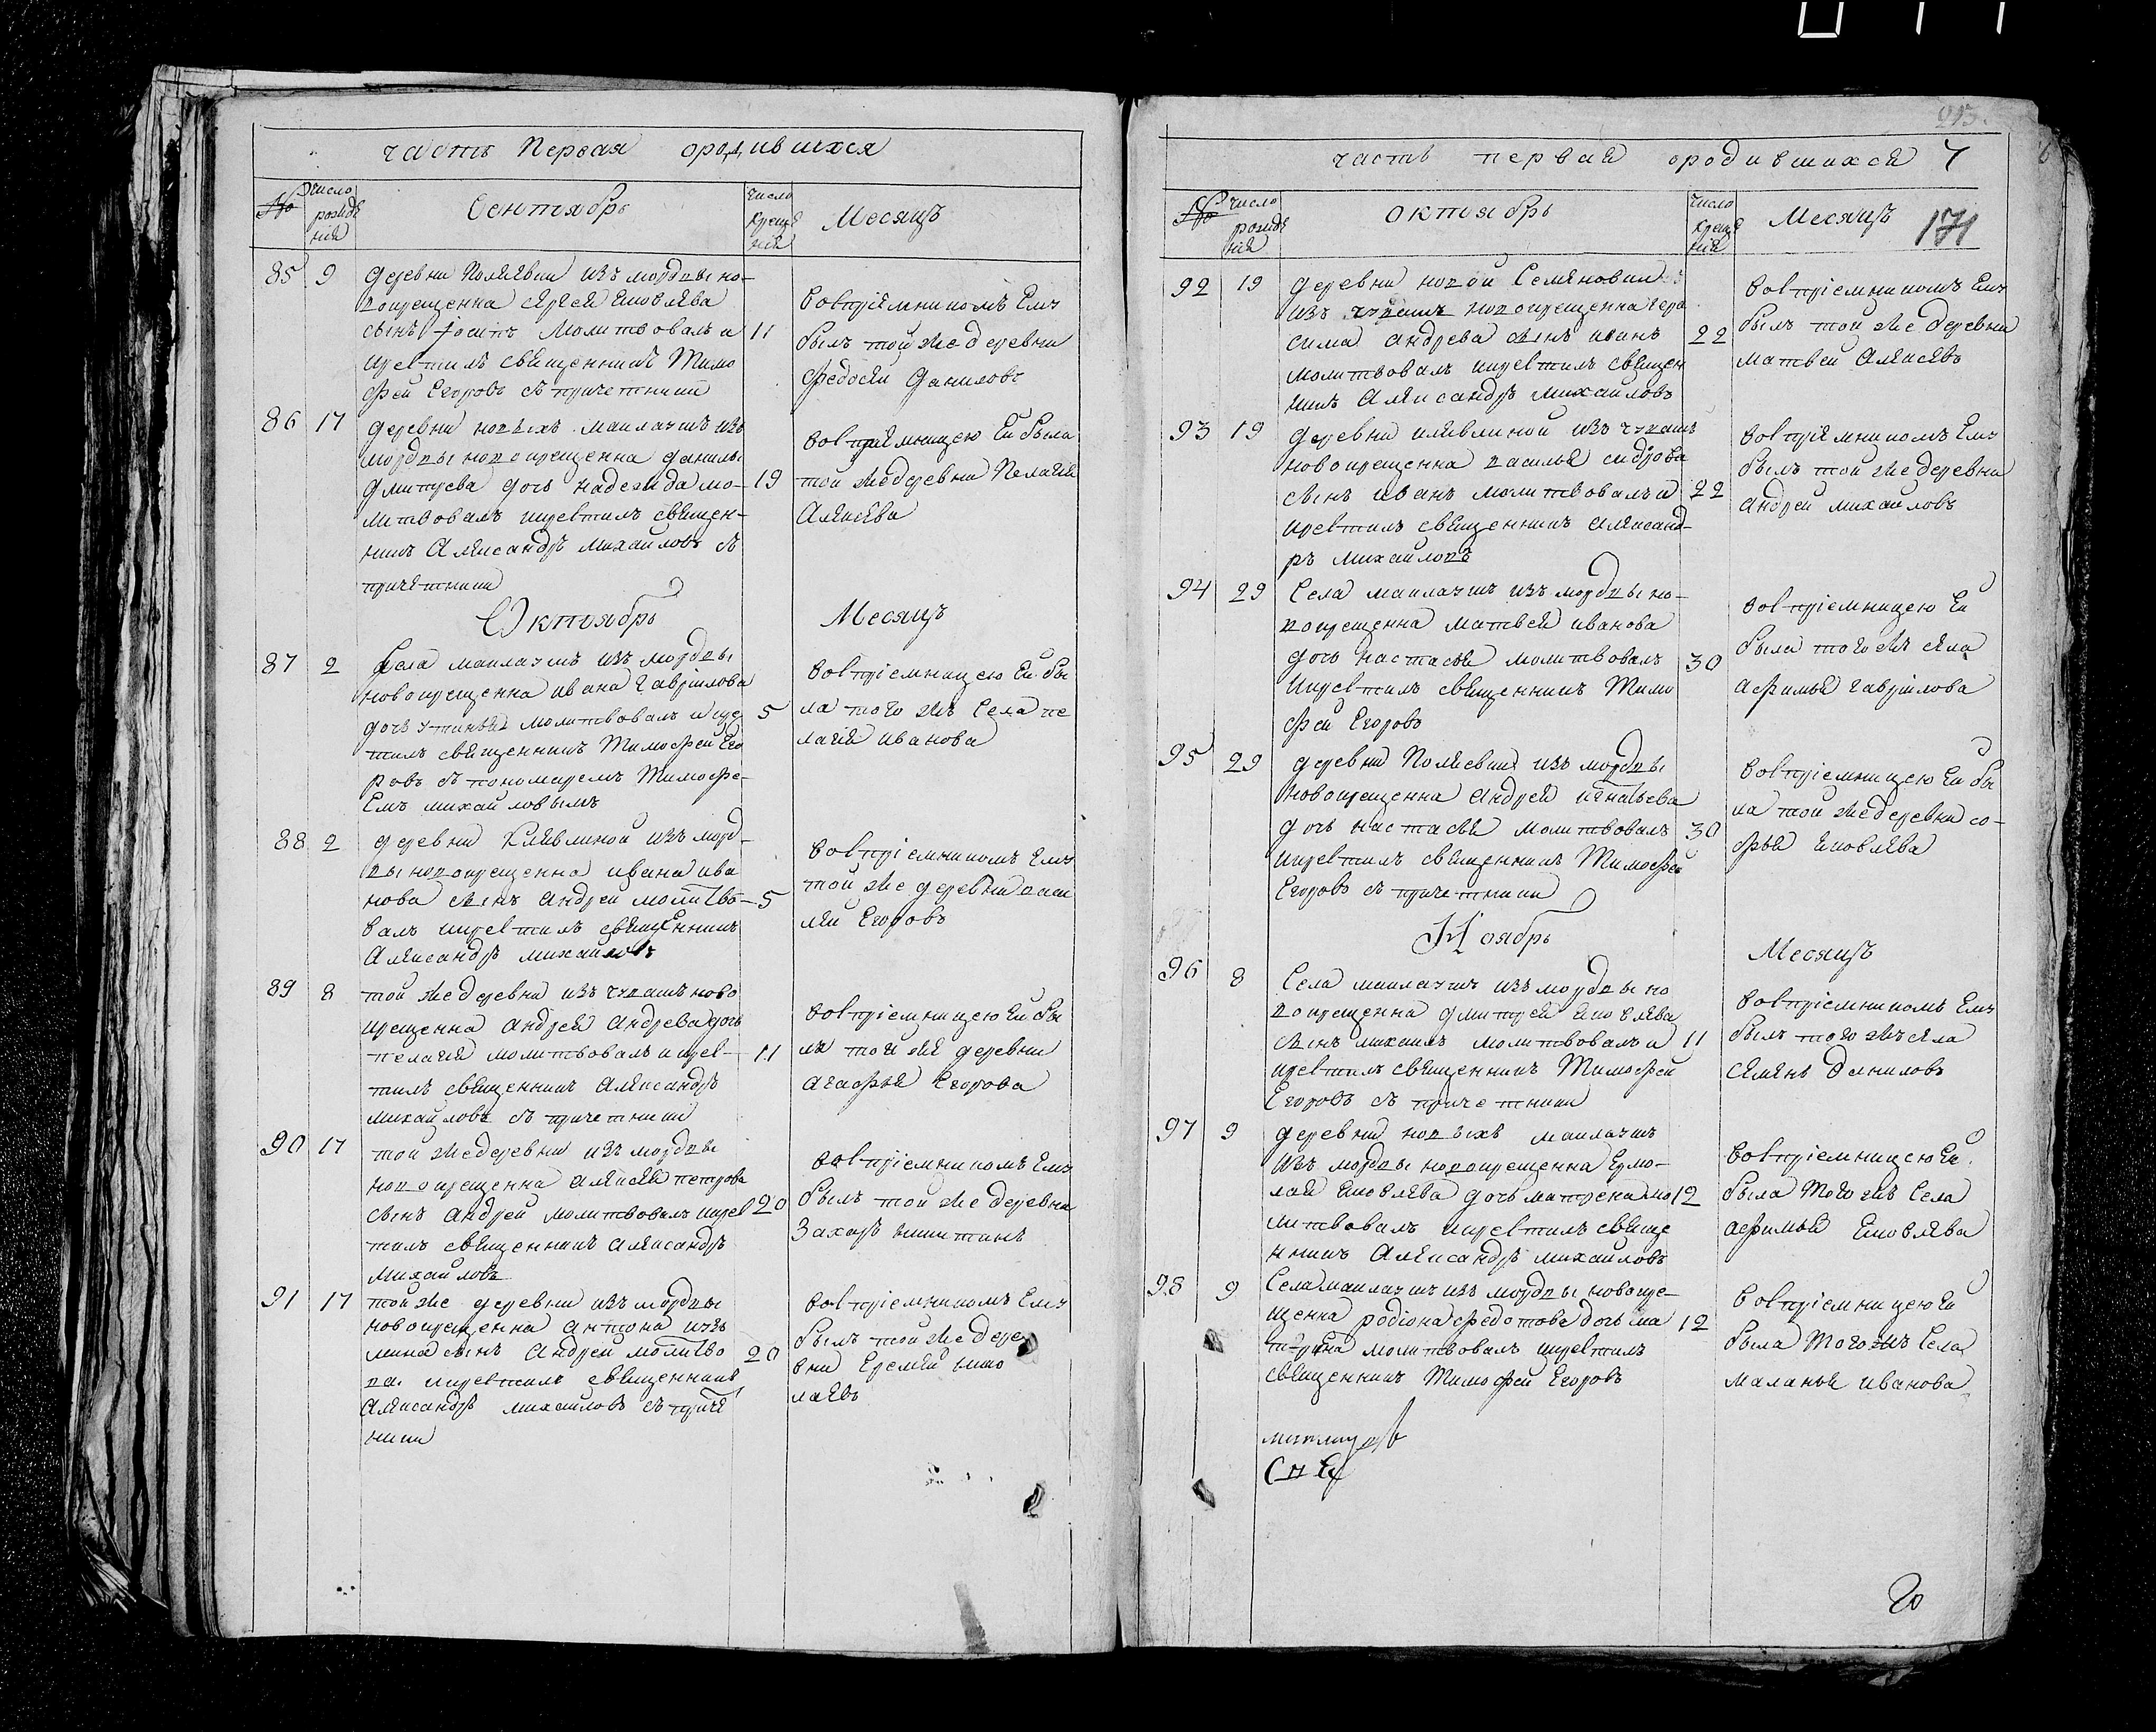 часть Первая ородившихся
№
число рожде нія
Сентябрь
число Креще нія
Месяцъ
85 9 деревни Поляевки изъ мордвы но-
вокрещенна сергея Яковлева
сынъ молитвовалъ и 11
крестилъ священникъ Тимо
фей Егоровъ съ причетники
восприемникомъ Ему
былъ той же деревни
федосеи Даниловъ
86 17 деревни новыхъ маклаушъ изъ
мордвы новокрещенна данилы
дмитрева дочь надежда мо- 19
литвовалъ икрестилъ священ-
никъ Александръ михайловъ съ
причетники
восприемницею Ей была
той же деревни Пелагея
Алексева
Октябрь Месяцъ
87 2 Села маклаушъ изъ мордвы
новокрещенна ивана гаврилова
дочь устинья молитвовалъ и крес 5
тилъ священникъ Тимофей Его
ровъ съ пономаремъ Тимофе-
Емъ михайловымъ
восприемницею Ей бы
ла того жъ Села пе
лагея иванова
88 2 деревни Клявлиной изъ морд-
вы новокрещенна ивана ива
нова сынъ андрей молитво- 5
валъ икрестилъ священникъ
Александръ михайловъ
восприемникомъ Ему
той же деревни васи
лей Егоровъ
89 8 той же деревни изъ чувашъ ново
крещенна андрея андрева дочь
пелагея молитвовалъ и крес- 11
тилъ священникъ александръ
михайловъ съ причетники
восприемницею Ей бы
ла той же деревни
агафья Егорова
90 17 той же деревни изъ мордвы
новокрещенна алексея петрова
сынъ андрей молитвовалъ икрес 20
тилъ священникъ александръ
михайловъ
восприемникомъ Ему
былъ той же деревни
Захаръ никитинъ
91 17 той же деревни изъ мордвы
новокрещенна антона изъ
мина сынъ андрей молитво 20
ва икрестилъ священникъ
Александръ михайловъ съ приче
ники
восприемникомъ Ему
былъ той же дере
вни Еремей нико
лаевъ
213.
часть первая ородившихся 7
№
число рожде нія
октябрь
число креще нія
Месяцъ 171
92 19 деревни новой Семеновки
изъ чувашъ новокрещенна гера
сима андрева сынъ иванъ 22
молитвовалъ икрестилъ священ
никъ Александръ михайловъ
восприемникомъ Ему
былъ той же деревни
матвей Алексевъ
93 19 деревни клявлиной изъ чувашъ
новокрещенна василья сидрова
сынъ иванъ молитвовалъ и 22
крестилъ священникъ александ-
ръ михайловъ
восприемникомъ Ему
былъ той же деревни
андрей михайловъ
94 29 Села маклаушъ изъ мордвы но-
вокрещенна матвея иванова
дочь настасья молитвовалъ 30
икрестилъ священникъ Тимо
фей Егоровъ
восприемницею Ей
была того жъ села
афимья гаврилова
95 29 деревни Поляевки изъ мордвы
новокрещенна андрея игнатьева
дочь настасья молитвовалъ 30
икрестилъ священникъ Тимофей
Егоровъ съ причетники
восприемницею Ей бы
ла той же деревни со-
фья Яковлева
Ноябрь Месяцъ
96 8 Села маклаушъ изъ мордвы но
вокрещенна дмитрея Яковлева
сынъ михаилъ молитвовалъ и 11
крестилъ священникъ Тимофей
Егоровъ съ причетники
восприемникомъ Ему
былъ того жъ села
семенъ даниловъ
97 9 деревни новыхъ маклаушъ
изъ мордвы новокрещенна Ермо-
лая Яковлева дочь матрена мо 12
литвовалъ икрестилъ свяще
нникъ Александръ михайловъ
восприемницею Ей
была того жъ Села
афимья Яковлева
98 9 Села маклаушъ изъ мордвы новокре-
щенна родіона федотова дочь ма 12
трена молитвовалъ икрестилъ
священникъ Тимофей Егоровъ
восприемницею Ей
была того жъ Села
маланья иванова